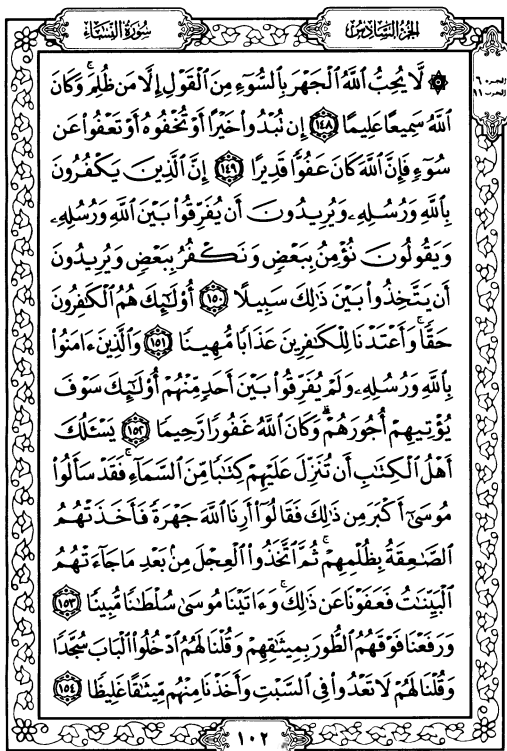 سُورَةُ النِّسَاءِ
الجُزْءُ السَّادِسُ
الجزء ٦
الحزب ١١
۞ لَّا يُحِبُّ ٱللَّهُ ٱلْجَهْرَ بِٱلسُّوٓءِ مِنَ ٱلْقَوْلِ إِلَّا مَن ظُلِمَ ۚ وَكَانَ
ٱللَّهُ سَمِيعًا عَلِيمًا ١٤٨ إِن تُبْدُوا۟ خَيْرًا أَوْ تُخْفُوهُ أَوْ تَعْفُوا۟ عَن
سُوٓءٍ فَإِنَّ ٱللَّهَ كَانَ عَفُوًّا قَدِيرًا ١٤٩ إِنَّ ٱلَّذِينَ يَكْفُرُونَ
بِٱللَّهِ وَرُسُلِهِۦ وَيُرِيدُونَ أَن يُفَرِّقُوا۟ بَيْنَ ٱللَّهِ وَرُسُلِهِۦ
وَيَقُولُونَ نُؤْمِنُ بِبَعْضٍ وَنَكْفُرُ بِبَعْضٍ وَيُرِيدُونَ
أَن يَتَّخِذُوا۟ بَيْنَ ذَٰلِكَ سَبِيلًا ١٥٠ أُو۟لَٰٓئِكَ هُمُ ٱلْكَٰفِرُونَ
حَقًّا ۚ وَأَعْتَدْنَا لِلْكَٰفِرِينَ عَذَابًا مُّهِينًا ١٥١ وَٱلَّذِينَ ءَامَنُوا۟
بِٱللَّهِ وَرُسُلِهِۦ وَلَمْ يُفَرِّقُوا۟ بَيْنَ أَحَدٍ مِّنْهُمْ أُو۟لَٰٓئِكَ سَوْفَ
يُؤْتِيهِمْ أُجُورَهُمْ ۗ وَكَانَ ٱللَّهُ غَفُورًا رَّحِيمًا ١٥٢ يَسْـَٔلُكَ
أَهْلُ ٱلْكِتَٰبِ أَن تُنَزِّلَ عَلَيْهِمْ كِتَٰبًا مِّنَ ٱلسَّمَآءِ ۚ فَقَدْ سَأَلُوا۟
مُوسَىٰٓ أَكْبَرَ مِن ذَٰلِكَ فَقَالُوٓا۟ أَرِنَا ٱللَّهَ جَهْرَةً فَأَخَذَتْهُمُ
ٱلصَّٰعِقَةُ بِظُلْمِهِمْ ۚ ثُمَّ ٱتَّخَذُوا۟ ٱلْعِجْلَ مِنۢ بَعْدِ مَا جَآءَتْهُمُ
ٱلْبَيِّنَٰتُ فَعَفَوْنَا عَن ذَٰلِكَ ۚ وَءَاتَيْنَا مُوسَىٰ سُلْطَٰنًا مُّبِينًا ١٥٣
وَرَفَعْنَا فَوْقَهُمُ ٱلطُّورَ بِمِيثَٰقِهِمْ وَقُلْنَا لَهُمُ ٱدْخُلُوا۟ ٱلْبَابَ سُجَّدًا
وَقُلْنَا لَهُمْ لَا تَعْدُوا۟ فِى ٱلسَّبْتِ وَأَخَذْنَا مِنْهُم مِّيثَٰقًا غَلِيظًا ١٥٤
١٠٢